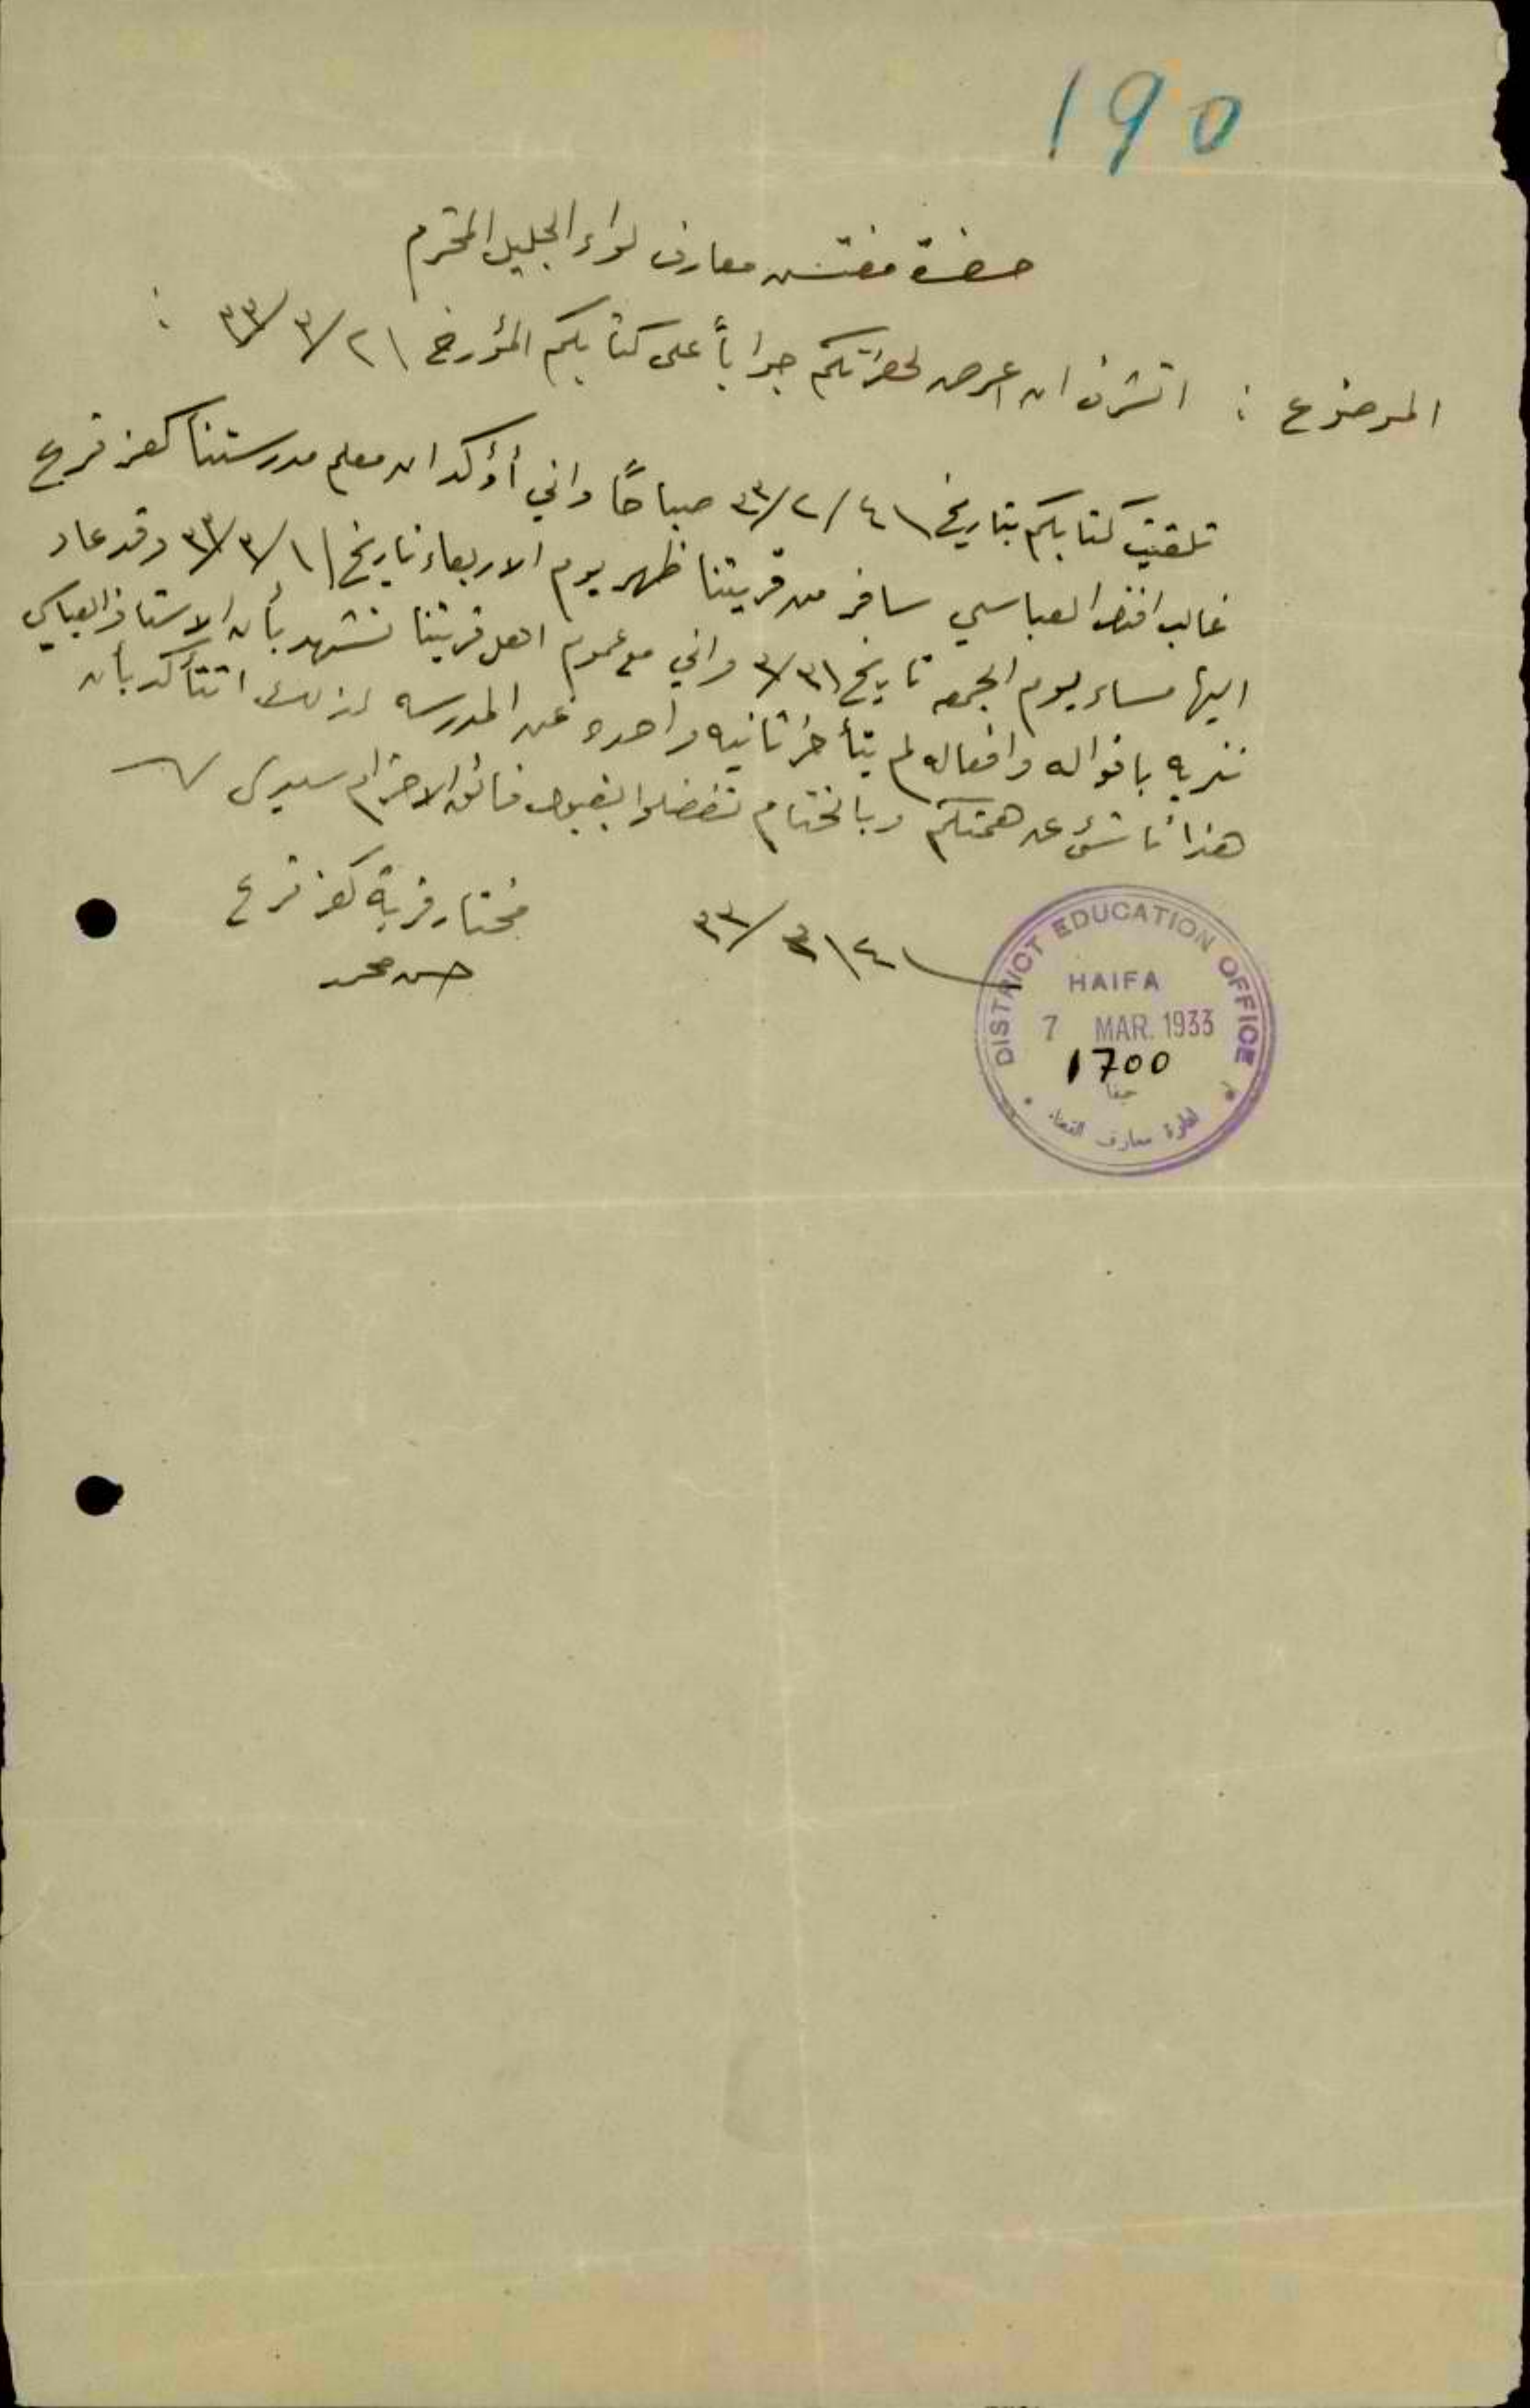 190
حضرة مفتش معارف لواء الجليل المحترم
الموضوع : اتشرف ان اعرض لحضرتكم جواباً على كتابكم المؤرخ ٢١/٣/٣٣ :
تلقيت كتابكم بتاريخ ٤١/٢/٣٣ صباحاً واني أؤكد ان معلم مدرستنا كفر قرع
غالب افندي العباسي سافر من قريتنا ظهر يوم الاربعاء تاريخ ١/٣/٣٣ وقد عاد
اليها مساء يوم الجمعه تاريخ ٣١/٣ واني مع عموم اهل قريتنا نشهد بأن الاستاذ العباسي
نزيه باقواله وافعاله لم يتأخر ثانيه واحده عن المدرسه لذلك اتأكد بأن
هذا ناشئ عن همتكم وبالختام تفضلوا بقبول فائق الاحترام سيدي
٤١/٣/٣٣
مختار قرية كفر قرع
حسن محمد
DISTRICT EDUCATION OFFICE
HAIFA
7 MAR. 1933
1700
حيفا
ادارة معارف القضاء